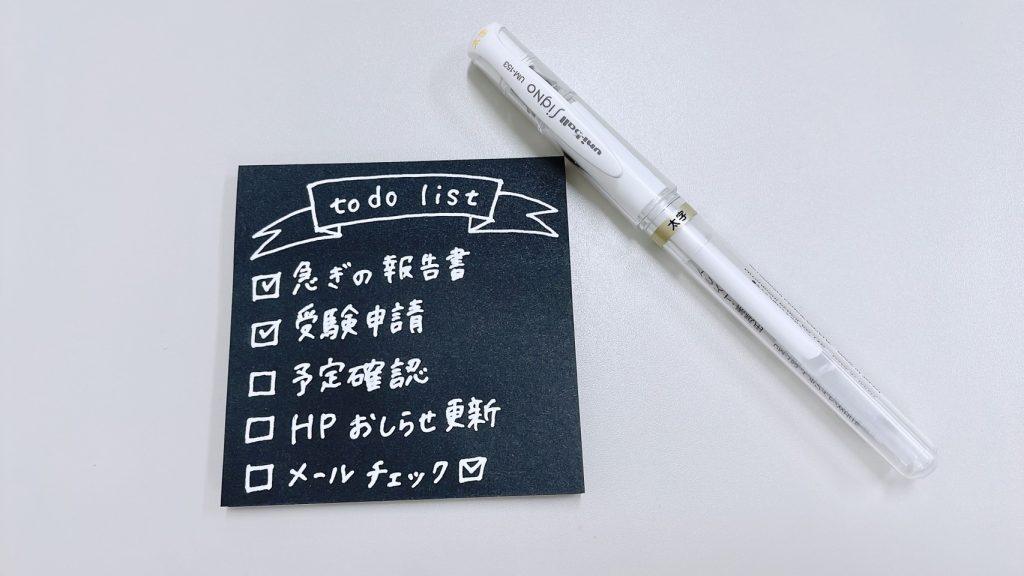 todo list
☑ 急ぎの報告書
☑ 受験申請
☐ 予定確認
☐ HP おしらせ更新
☐ メールチェック
uni-ball SigNo UM-153
太字